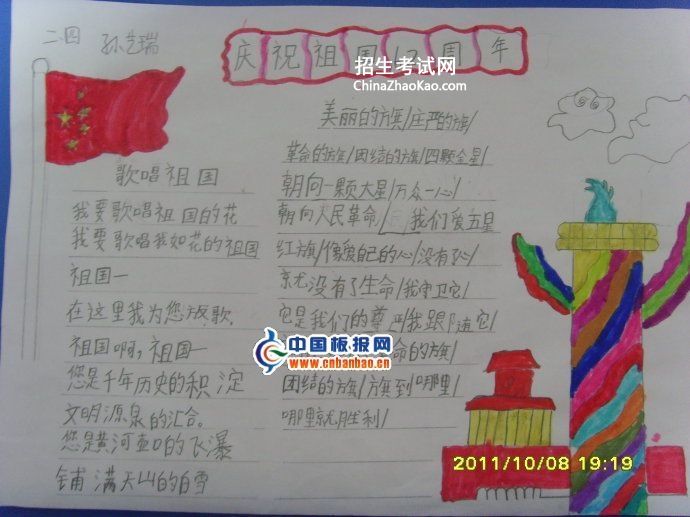 二四 孙艺瑞
庆祝祖国62周年
招生考试网
ChinaZhaoKao.com
歌唱祖国
我要歌唱祖国的花
我要歌唱我如花的祖国
祖国一
在这里我为您放歌.
祖国啊,祖国一
您是千年历史的积淀
文明源泉的汇合.
您是黄河壶口的飞瀑
铺满天山的白雪
美丽的旗/庄严的旗/
革命的旗/团结的旗/四颗金星/
朝向一颗大星/万众一心/
朝向人民革命/ 我们爱五星
红旗/像爱自己的心/没有了心/
京尤没有了生命/我守卫它/
它是我们的尊严/我跟随它/
命的旗/
团结的旗/旗到哪里/
哪里就胜利/
中国板报网
www.cnbanbao.cn
2011/10/08 19:19